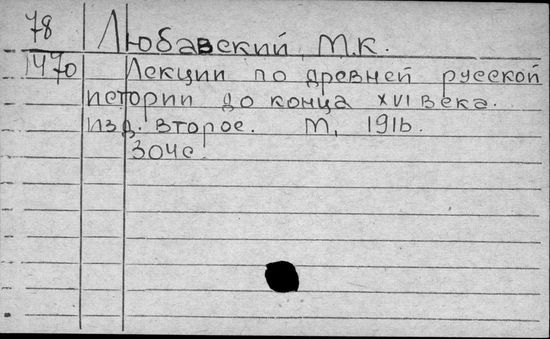 78 Любавский, М.К.
1470 Лекции по древней русской
истории до конца XVI века.
изд. второе. М, 1916.
304с.